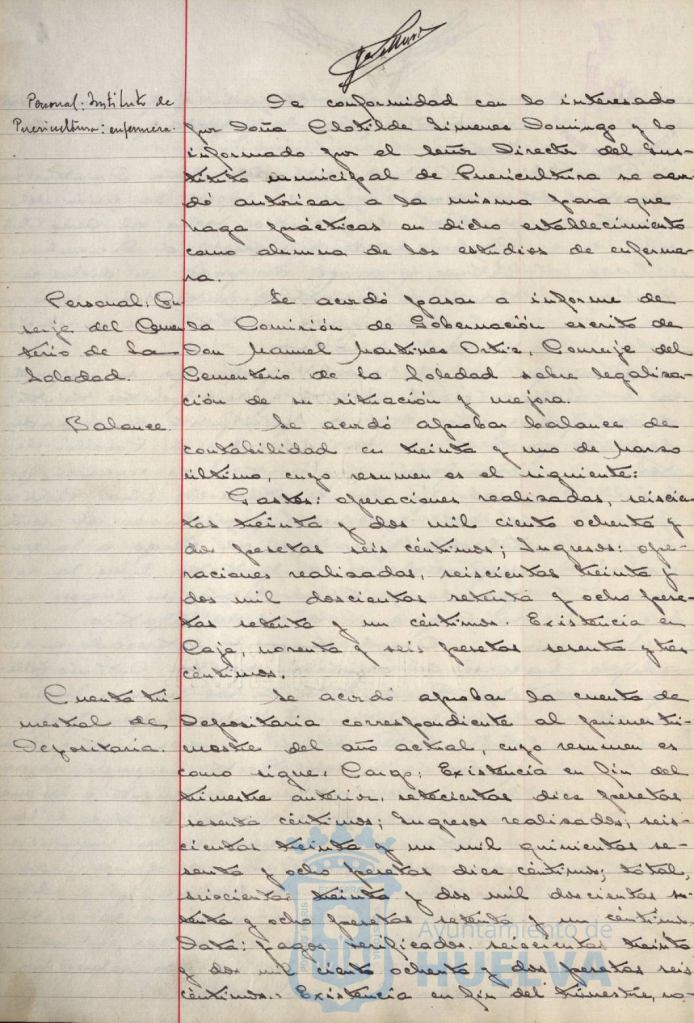 Personal: Instituto de
Puericultura: enfermera.
De conformidad con lo interesado
por Doña Clotilde Gimenez Domingo y lo
informado por el señor Director del Ins-
tituto municipal de Puericultura se acor-
dó autorizar a la misma para que
haga prácticas en dicho establecimiento
como alumna de los estudios de enferme-
ra.
Personal: Con
serje del Cemen
terio de la
Soledad.
Se acordó pasar a informe de
la Comisión de Gobernación escrito de
Don Manuel Martinez Ortiz, Conserje del
Cementerio de la Soledad sobre legaliza-
ción de su situación y mejora.
Balance.
Se acordó aprobar balance de
contabilidad en treinta y uno de Marzo
último, cuyo resumen es el siguiente:
Gastos: operaciones realizadas, seiscien-
tas treinta y dos mil ciento ochenta y
dos pesetas seis céntimos; Ingresos: ope-
raciones realizadas, seiscientas treinta y
dos mil doscientas setenta y ocho pese-
tas setenta y un céntimos. Existencia en
Caja, noventa y seis pesetas sesenta y tres
céntimos.
Cuenta tri-
mestral de
Depositaria.
Se acordó aprobar la cuenta de
Depositaria correspondiente al primer tri-
mestre del año actual, cuyo resumen es
como sigue: Cargo: Existencia en fin del
trimestre anterior, setecientas diez pesetas
sesenta céntimos; Ingresos realizados, seis-
cientas treinta y un mil quinientas se-
senta y ocho pesetas diez céntimos; total,
seiscientas treinta y dos mil doscientas se-
tenta y ocho pesetas setenta y un céntimos.
Data: pagos verificados, seiscientas treinta
y dos mil ciento ochenta y dos pesetas seis
céntimos.- Existencia en fin del trimestre, no-
Ayuntamiento de
HUELVA